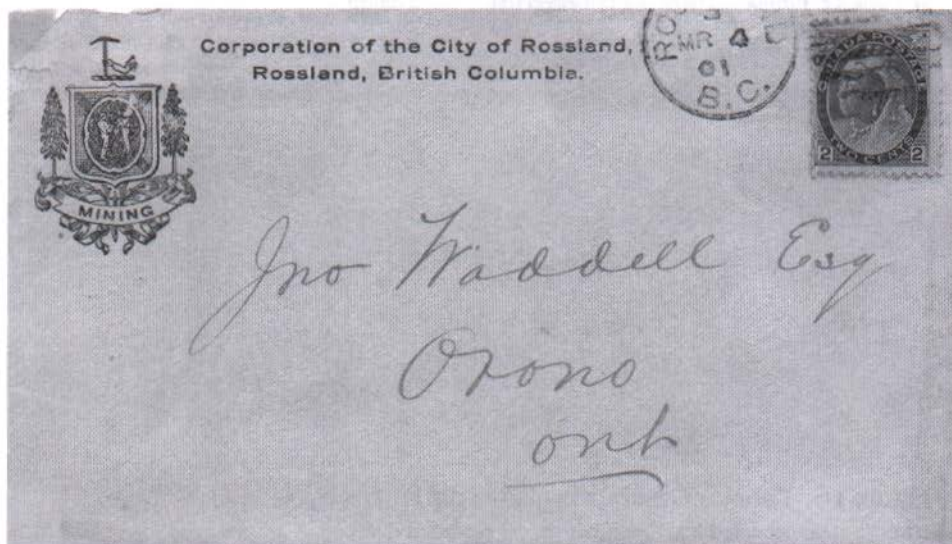 Corporation of the City of Rossland,
Rossland, British Columbia.
MINING
MR 4
01
B.C.
POSTAGE
TWO CENTS
2 2
Jno Waddell Esq
Orono
Ont